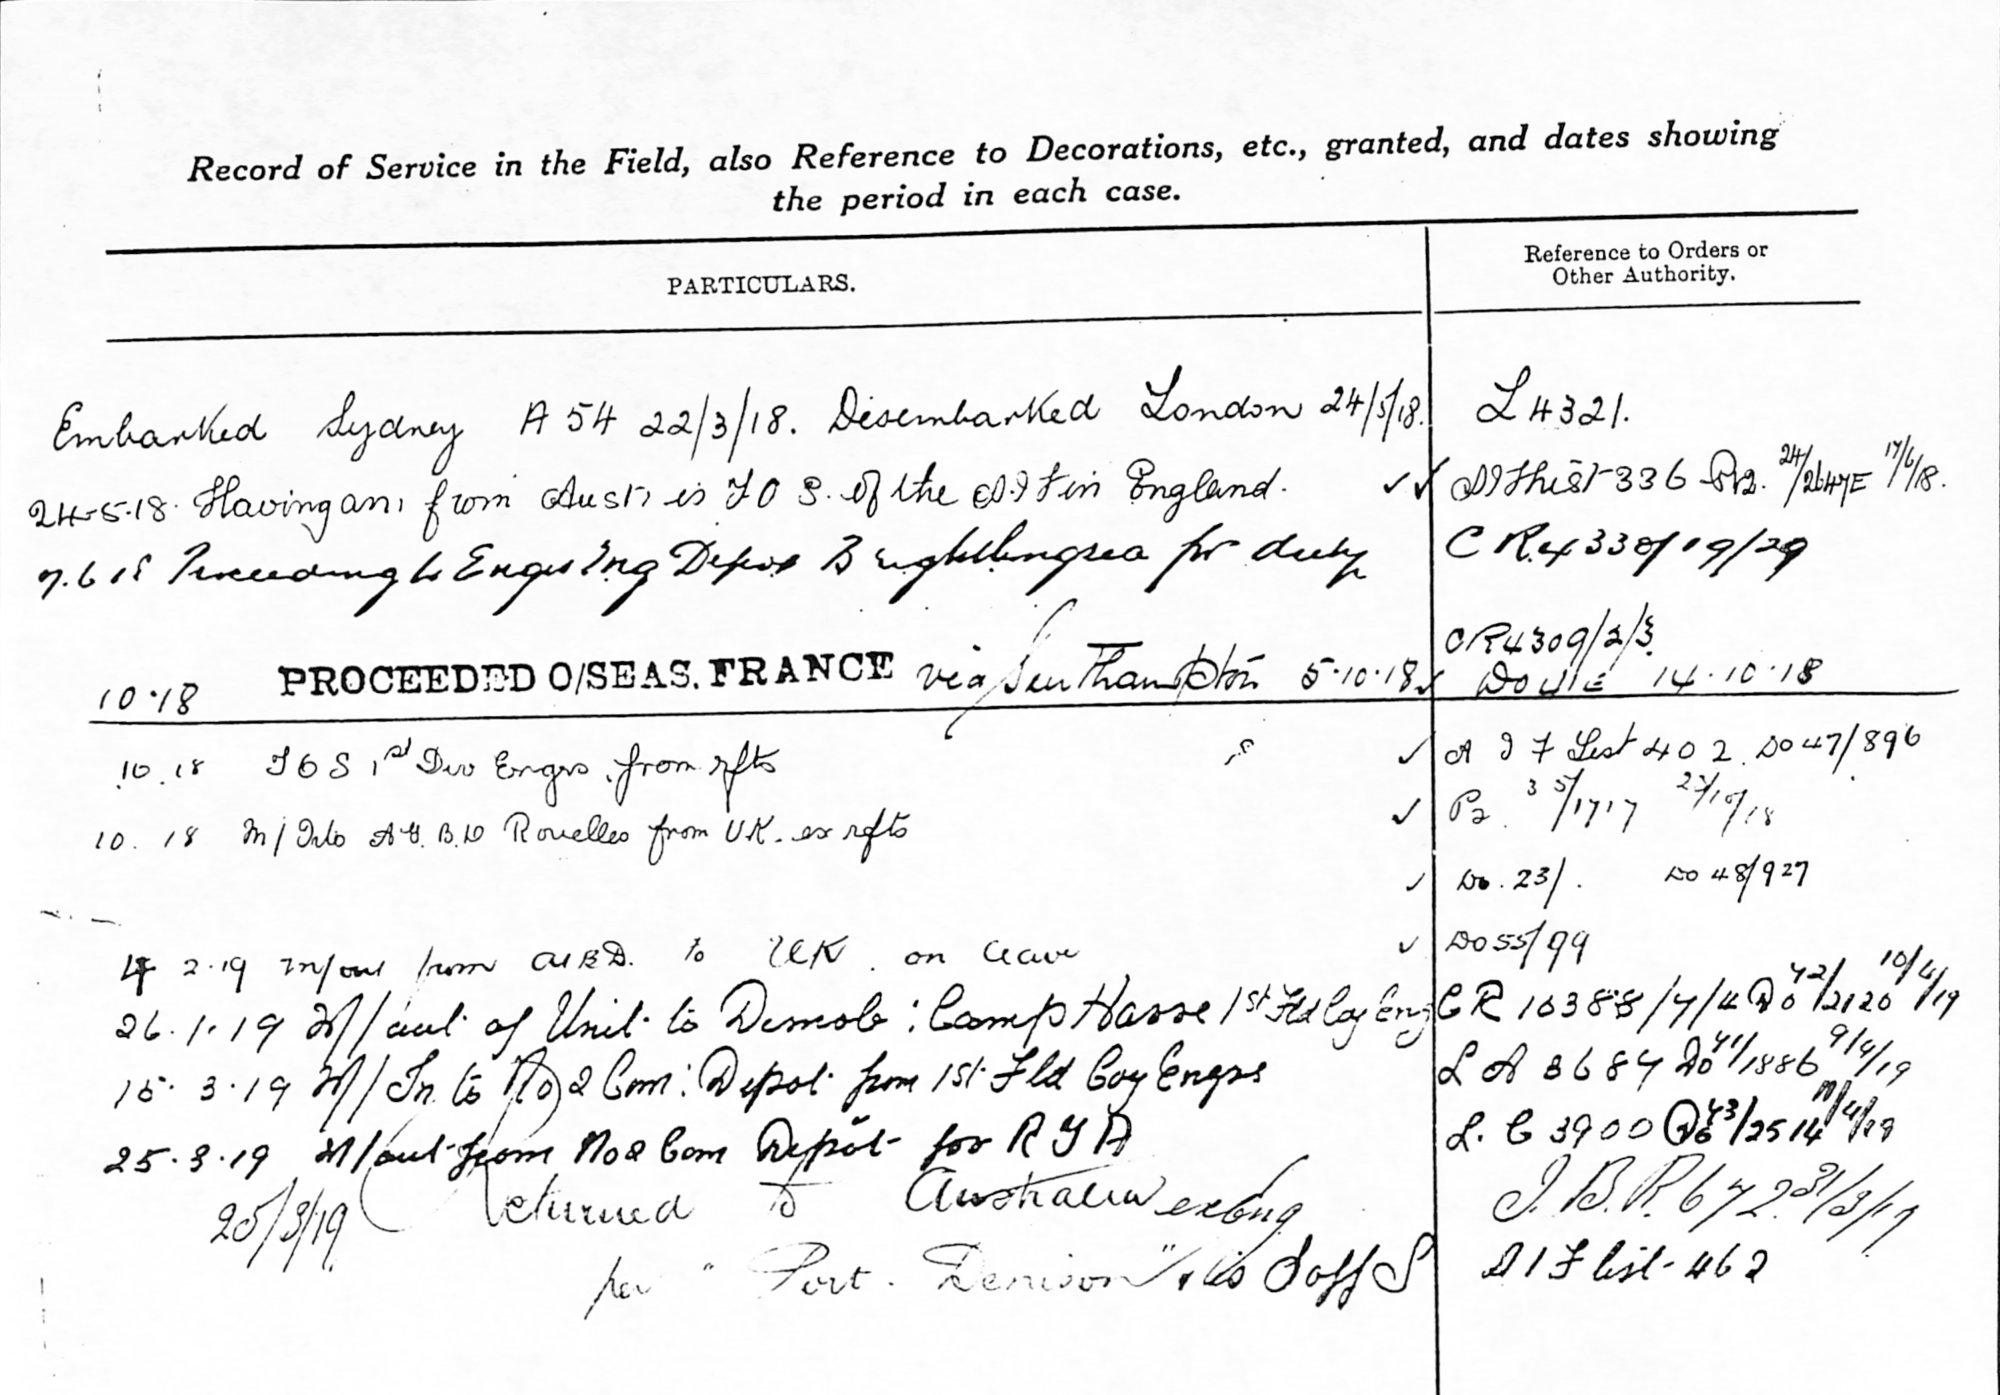 Record of Service in the Field, also Reference to Decorations, etc., granted, and dates showing
the period in each case.
PARTICULARS.
Reference to Orders or
Other Authority.
Embarked Sydney A 54 22/3/18. Disembarked London 24/5/18. L 4321.
24-5-18. Having arr. from Aust: is T O S. of the A I F in England. A I F list 336 P2. 24/2647E 17/6/18.
7.6.18 Proceeding to Engrs Tng Depot Brightlingsea for duty C R. 4330/19/29
CR4309/2/3
10.18 PROCEEDED O/SEAS. FRANCE via Southampton 5.10.18 DO 14.10.18
10.18 T O S 1st Div Engrs. from rfts A I F List 402. DO 47/896
10. 18 M/Into A G. B. D Rouelles from U.K. ex rfts P2. 35/1717 /10/18
Do. 23/. DO 48/927
4 2.19 m/out from to UK. on leave DO 55/99
26.1.19 M/out of Unit to Demob: Camp Havre 1st Fld Coy Eng C R 10388/7/4 Do 42/2120 10/4/19
15.3.19 M/In to No 2 Com: Depot from 1st Fld Coy Engrs L A 3684 Do 41/1886 9/4/19
25.3.19 M/out from No 2 Com Depôt for R T A L. C 3900 Do 43/2514 /4/19
25/3/19 Returned to Australia ex Eng I. B. R. 672 31/3/19
per "Port Denison" & is S off S A I F list 462